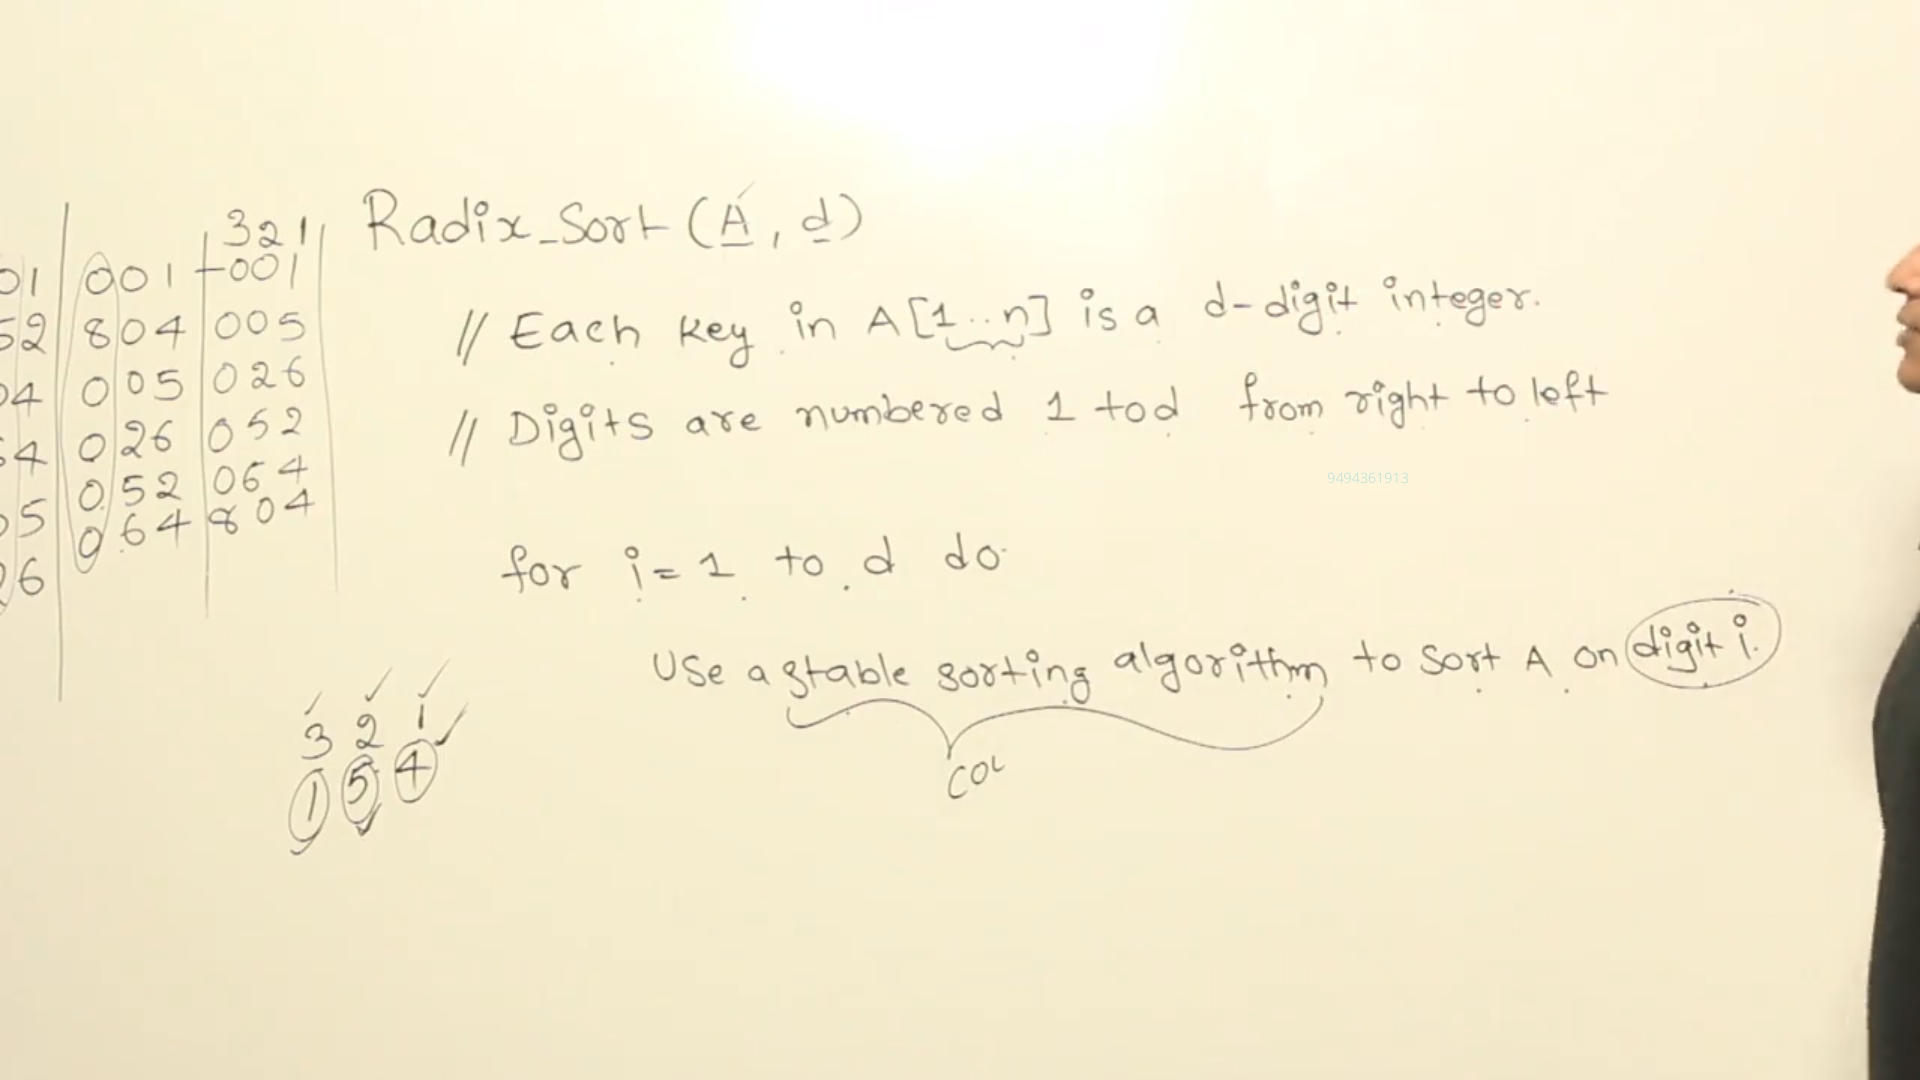 321
01 001 001
52 804 005
04 005 026
64 026 052
05 052 064
26 064 804
Radix_Sort (A, d)
// Each key in A[1..n] is a d-digit integer.
// Digits are numbered 1 to d from right to left
9494361913
for i = 1 to d do
Use a stable sorting algorithm to sort A on digit i.
cou
3 2 1
1 5 4